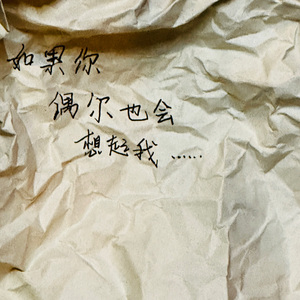 如果你
偶尔也会
想起我……